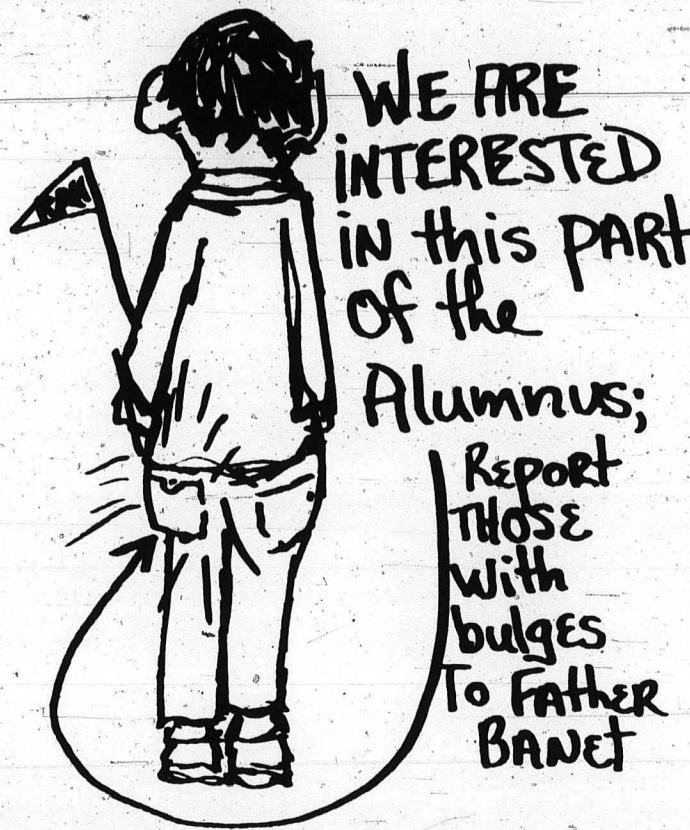 RAH
WE ARE
iNTERESTED
iN this PART
Of the
Alumnus;
REPORt
THOSE
with
bulgEs
To FAthER
BANEt